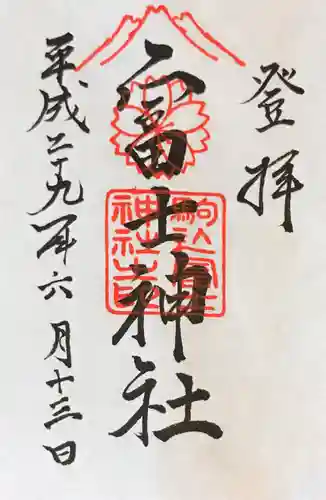 登拝
富士神社
駒込冨士
神社之印
平成二十九年六月十三日